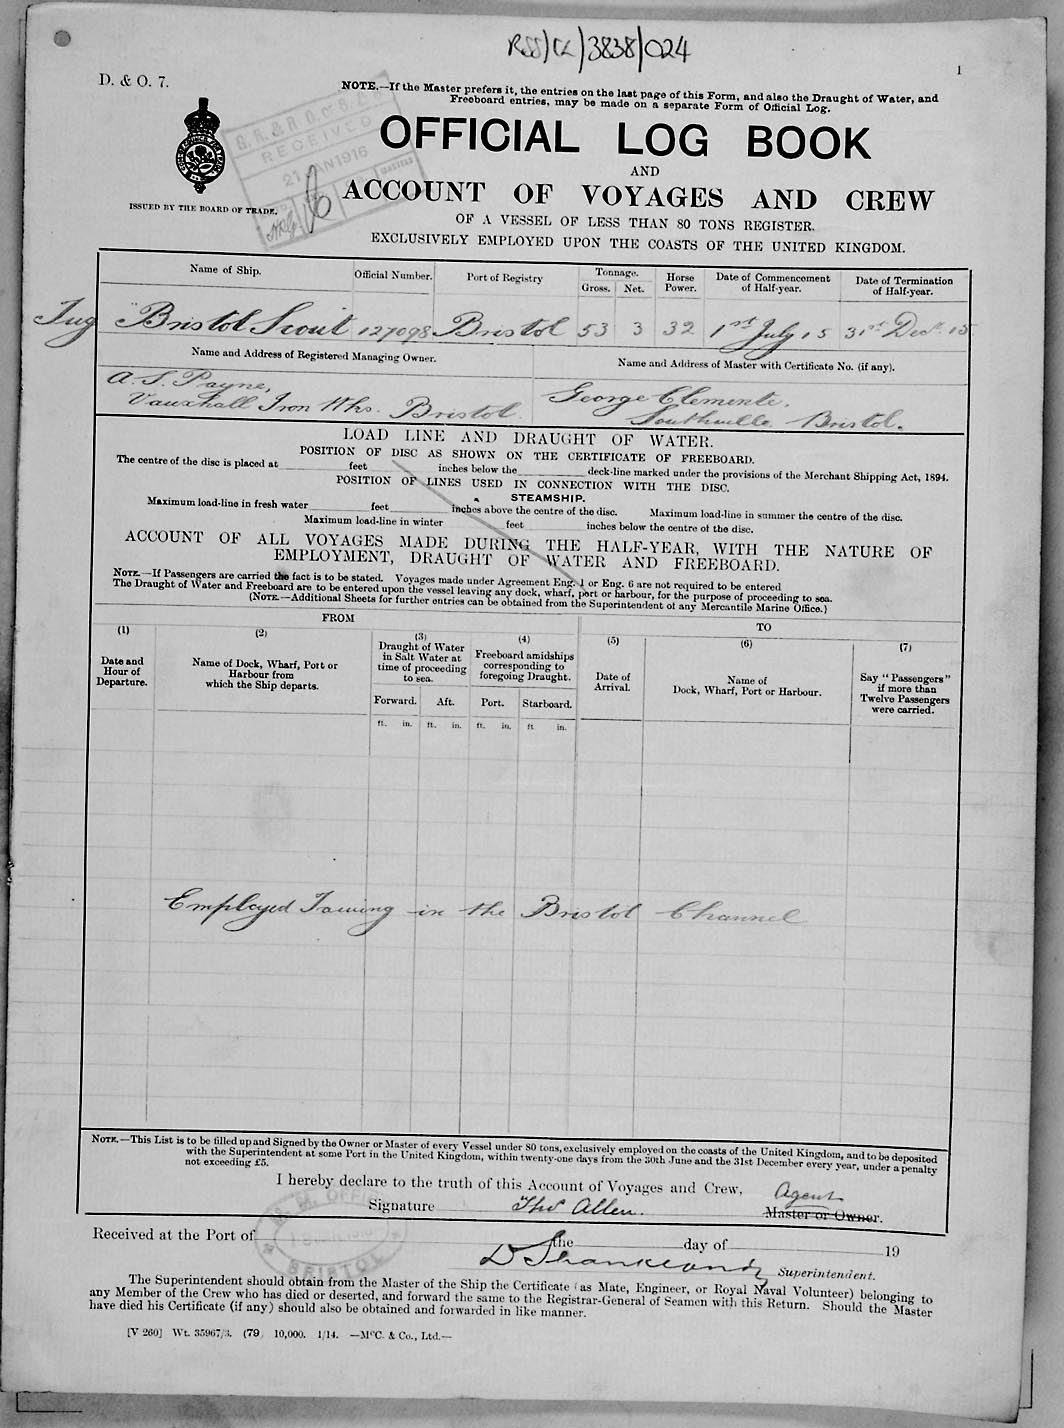 RSS/CL/3838/024
1
D. & O. 7.
NOTE.—If the Master prefers it, the entries on the last page of this Form, and also the Draught of Water, and
Freeboard entries, may be made on a separate Form of Official Log.
OFFICIAL LOG BOOK
AND
ACCOUNT OF VOYAGES AND CREW
OF A VESSEL OF LESS THAN 80 TONS REGISTER.
EXCLUSIVELY EMPLOYED UPON THE COASTS OF THE UNITED KINGDOM.
RECEIVED
21 JAN 1916
ISSUED BY THE BOARD OF TRADE.
Name of Ship. Official Number. Port of Registry Tonnage. Gross. Net. Horse Power. Date of Commencement of Half-year. Date of Termination of Half-year.
Tug "Bristol Scout 127098 Bristol 53 3 32 1st July 15 31st Decr. 15
Name and Address of Registered Managing Owner. Name and Address of Master with Certificate No. (if any).
A. S. Payne, George Clements.
Vauxhall Iron Wks. Bristol Southville Bristol.
LOAD LINE AND DRAUGHT OF WATER.
POSITION OF DISC AS SHOWN ON THE CERTIFICATE OF FREEBOARD.
The centre of the disc is placed at feet inches below the deck-line marked under the provisions of the Merchant Shipping Act, 1894.
POSITION OF LINES USED IN CONNECTION WITH THE DISC.
STEAMSHIP.
Maximum load-line in fresh water feet inches above the centre of the disc. Maximum load-line in summer the centre of the disc.
Maximum load-line in winter feet inches below the centre of the disc.
ACCOUNT OF ALL VOYAGES MADE DURING THE HALF-YEAR, WITH THE NATURE OF
EMPLOYMENT, DRAUGHT OF WATER AND FREEBOARD.
NOTE.—If Passengers are carried the fact is to be stated. Voyages made under Agreement Eng. 1 or Eng. 6 are not required to be entered
The Draught of Water and Freeboard are to be entered upon the vessel leaving any dock, wharf, port or harbour, for the purpose of proceeding to sea.
(NOTE.—Additional Sheets for further entries can be obtained from the Superintendent of any Mercantile Marine Office.)
FROM TO
(1) (2) (3) (4) (5) (6) (7)
Date and Hour of Departure.
Name of Dock, Wharf, Port or Harbour from which the Ship departs.
Draught of Water in Salt Water at time of proceeding to sea.
Freeboard amidships corresponding to foregoing Draught.
Date of Arrival.
Name of Dock, Wharf, Port or Harbour.
Say "Passengers" if more than Twelve Passengers were carried.
Forward. Aft. Port. Starboard.
ft. in. ft. in. ft. in. ft. in.
Employed Towing in the Bristol Channel
NOTE.—This List is to be filled up and Signed by the Owner or Master of every Vessel under 80 tons, exclusively employed on the coasts of the United Kingdom, and to be deposited
with the Superintendent at some Port in the United Kingdom, within twenty-one days from the 30th June and the 31st December every year, under a penalty
not exceeding £5.
I hereby declare to the truth of this Account of Voyages and Crew, Agent
Signature Thos Allen. Master or Owner.
M. M. OFFICE
BRISTOL
Received at the Port of the day of 19
D Shanklandy Superintendent.
The Superintendent should obtain from the Master of the Ship the Certificate (as Mate, Engineer, or Royal Naval Volunteer) belonging to
any Member of the Crew who has died or deserted, and forward the same to the Registrar-General of Seamen with this Return. Should the Master
have died his Certificate (if any) should also be obtained and forwarded in like manner.
[V 260] Wt. 35967/3. (79) 10,000. 1/14. —McC. & Co., Ltd.—